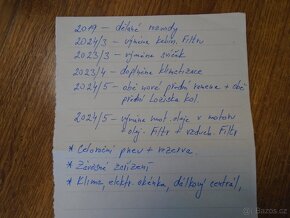 2019 - dělané rozvody
2024/3 - výměna kabin. Filtru
2023/3 - výměna svíček
2023/4 - doplněna klimatizace
2024/5 - obě nové přední ramena + obě
přední ložiska kol.
2024/5 - výměna mot. oleje v motoru
+ olej. Filtr + vzduch. Filtr
* Celoroční pneu + rezerva
* Závěsné zařízení
* Klima, elektr. okénka, dálkový centrál,
Bazos.cz